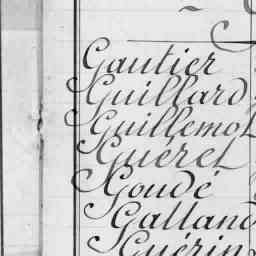 Gautier
Guillard
Guillemot
Guéret
Goudé
Galland
Guérin